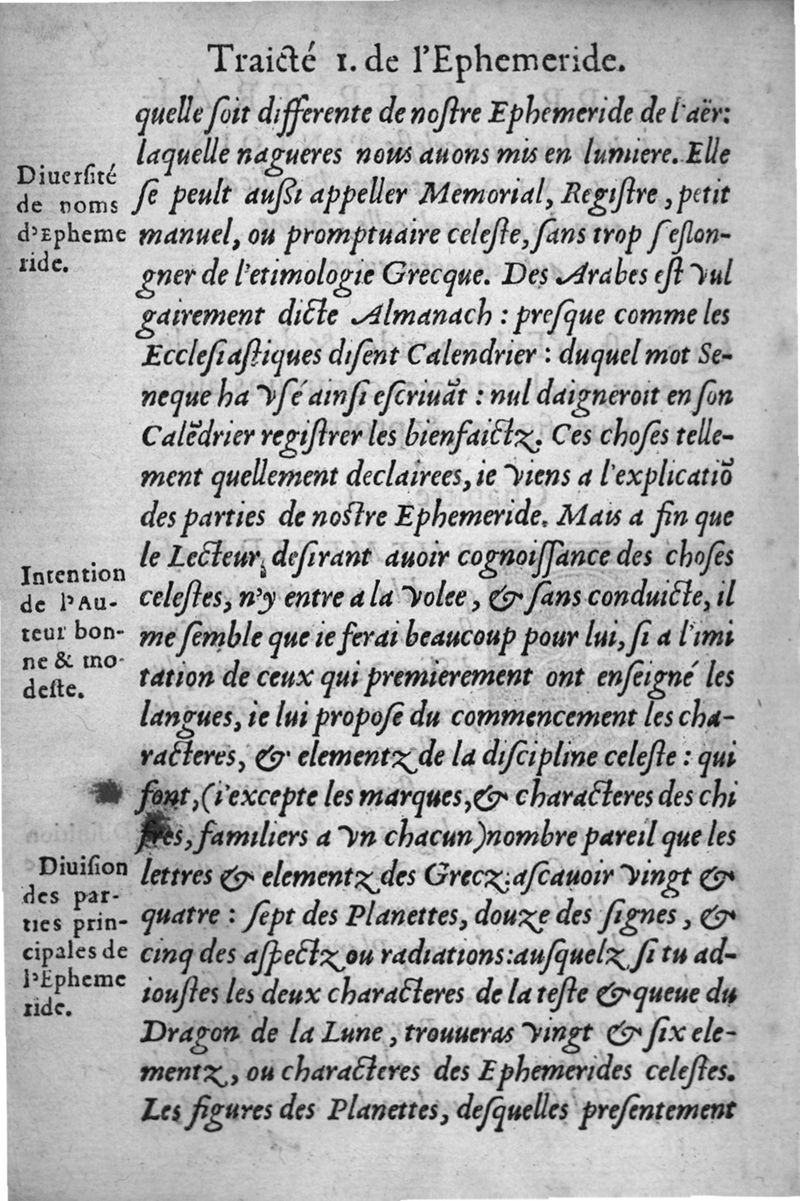 Traicté 1. de l'Ephemeride.
quelle ſoit differente de noſtre Ephemeride de l'aër:
laquelle nagueres nous auons mis en lumiere. Elle
ſe peult auſsi appeller Memorial, Regiſtre, petit
manuel, ou promptuaire celeſte, ſans trop ſ'eſlon-
gner de l'etimologie Grecque. Des Arabes eſt vul
gairement dicte Almanach : preſque comme les
Eccleſiaſtiques diſent Calendrier : duquel mot Se-
neque ha vſé ainſi eſcriuāt : nul daigneroit en ſon
Calēdrier regiſtrer les bienfaictz. Ces choſes telle-
ment quellement declairees, ie viens a l'explicatiō
des parties de noſtre Ephemeride. Mais a fin que
le Lecteur, deſirant auoir cognoiſſance des choſes
celeſtes, n'y entre a la volee, & ſans conduicte, il
me ſemble que ie ferai beaucoup pour lui, ſi a l'imi
tation de ceux qui premierement ont enſeigné les
langues, ie lui propoſe du commencement les cha-
racteres, & elementz de la diſcipline celeſte : qui
ſont, (i'excepte les marques, & characteres des chi
fres, familiers a vn chacun) nombre pareil que les
lettres & elementz des Grecz: aſcauoir vingt &
quatre : ſept des Planettes, douze des ſignes, &
cinq des aſpectz ou radiations: auſquelz ſi tu ad-
iouſtes les deux characteres de la teſte & queue du
Dragon de la Lune, trouueras vingt & ſix ele-
mentz, ou characteres des Ephemerides celeſtes.
Les figures des Planettes, deſquelles preſentement
Diuerſité
de noms
d'Epheme
ride.
Intention
de l'Au-
teur bon-
ne & mo-
deſte.
Diuiſion
des par-
ties prin-
cipales de
l'Epheme
ride.